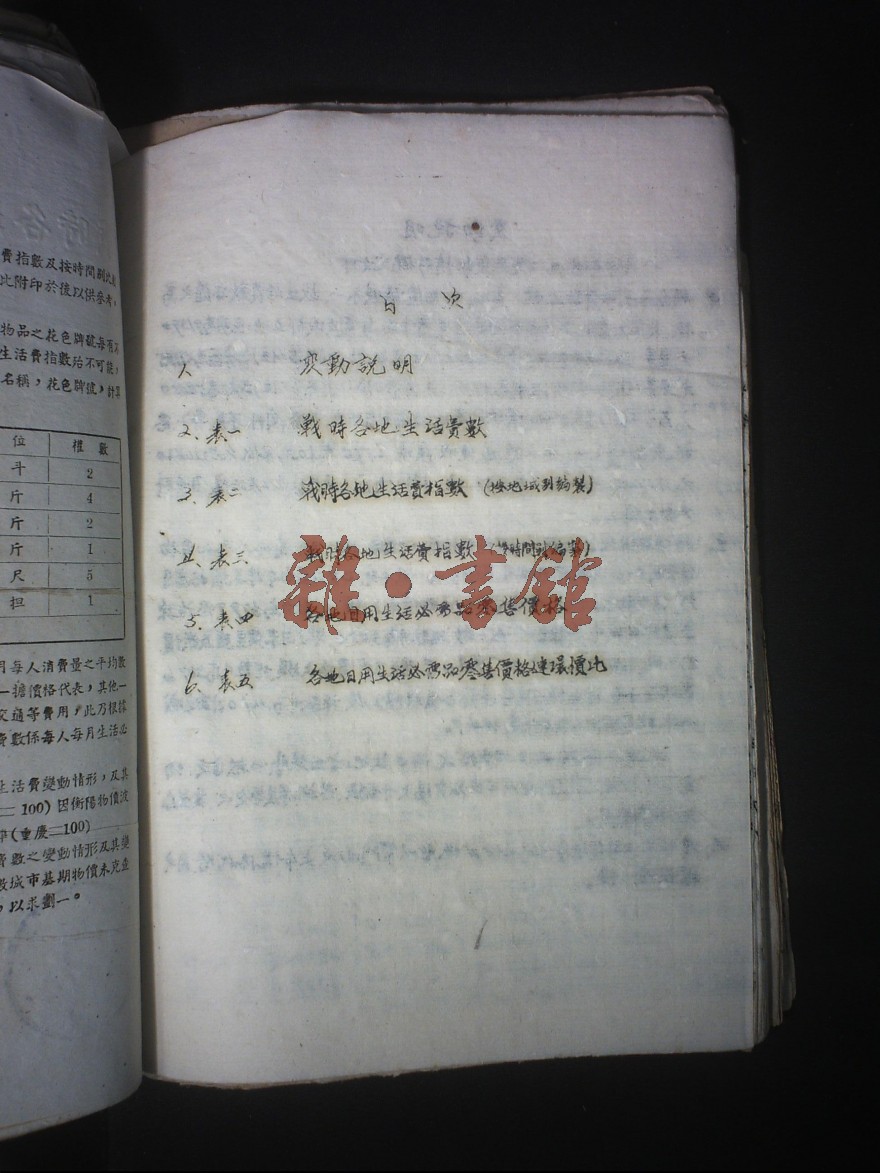 費指數及按時間別比
此附印於後以供參考。
物品之花色牌號每有不
生活費指數殆不可能，
名稱，花色牌號，計算
位 權數
斗 2
斤 4
斤 2
斤 1
尺 5
担 1
月每人消費量之平均數
一擔價格代表，其他一
交通等費用，此乃根據
費數係每人每月生活必
生活費變動情形，及其
＝100) 因衡陽物價波
準(重慶＝100)
費數之變動情形及其變
數城市基期物價未克查
，以求劃一。
目次
1. 变動說明
2. 表一 戰時各地生活費數
3. 表二 戰時各地生活費指數 (按地域别編製)
4. 表三 戰時各地生活費指數 (按時間别編製)
5. 表四 各地日用生活必需品零售價格
6. 表五 各地日用生活必需品零售價格連環價比
雜·書館
1